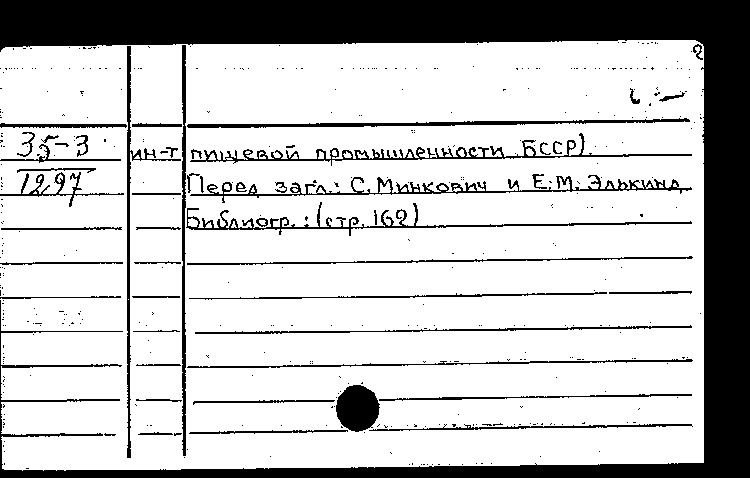 2
35-3 ин-т пищевой промышленности БССР)
1297 Перед загл.: С. Минкович и Е.М. Элькинд
Библиогр.: (стр. 162)